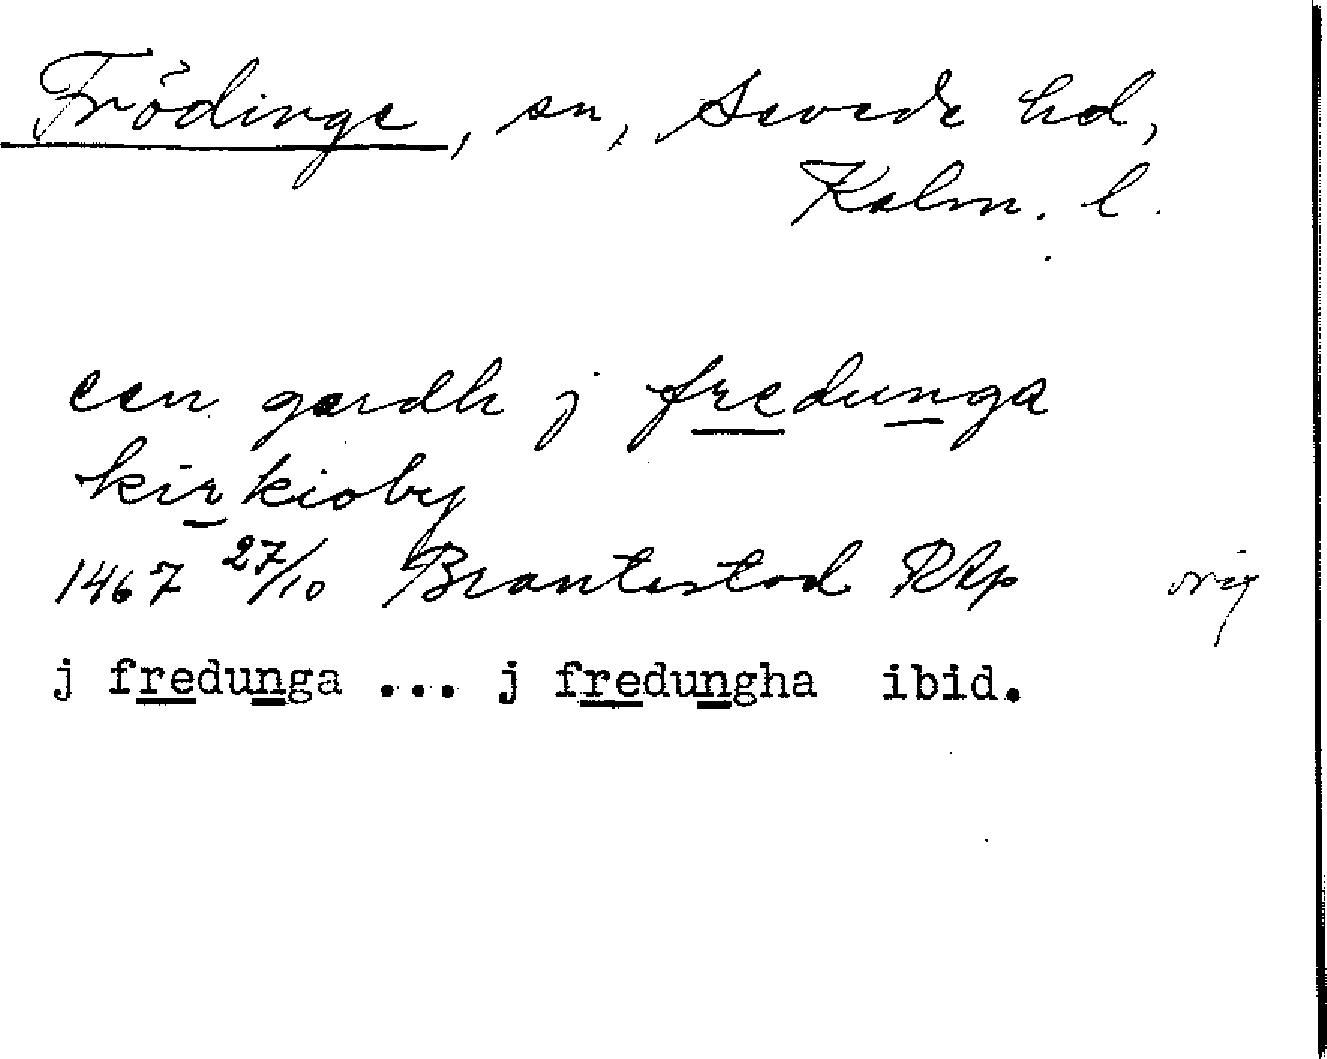 Frödinge, sn, Sevede hd,
Kalm. l.
een gardh j fredunga
kirkioby
1467 27/10 Brantestad RAp orig
j fredunga ... j fredungha ibid.